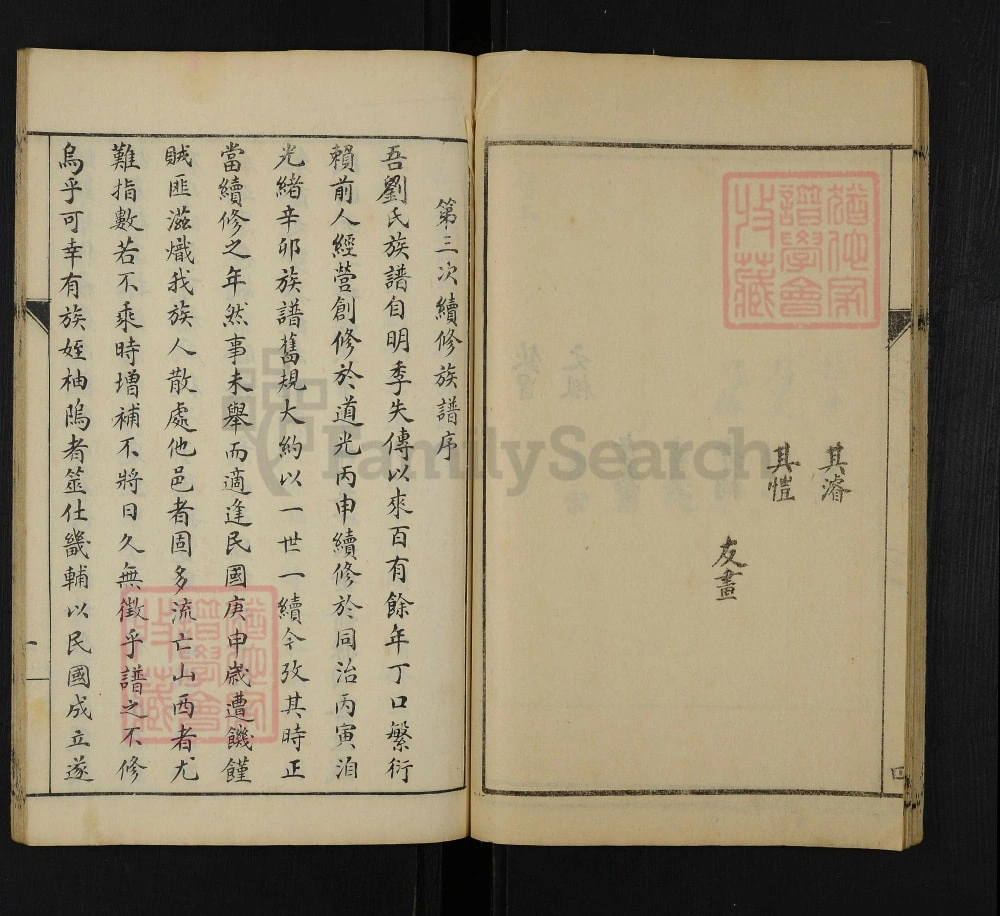 其濬
其愷
友晝
四
第三次續修族譜序
吾劉氏族譜自明季失傳以來百有餘年丁口繁衍
賴前人經營創修於道光丙申續修於同治丙寅洎
光緒辛卯族譜舊規大約以一世一續今攷其時正
當續修之年然事未舉而適逢民國庚申歲遭饑饉
賊匪滋熾我族人散處他邑者固多流亡山西者尤
難指數若不乘時增補不將日久無徵乎譜之不修
烏乎可幸有族姪柚塢者筮仕畿輔以民國成立遂
一
譜學會
收藏
譜學會
收藏
FamilySearch